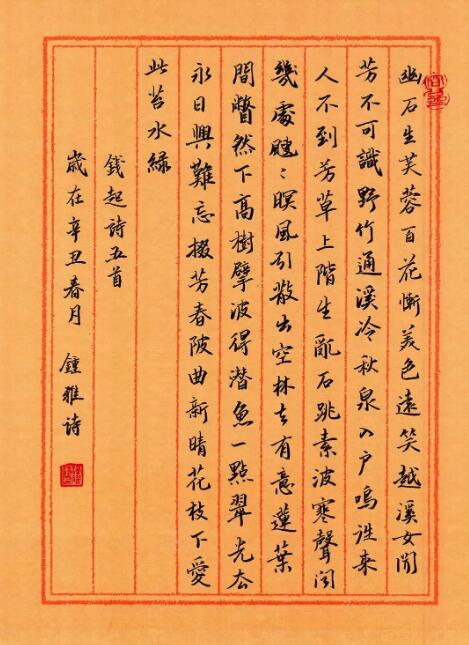 幽石生芙蓉百花慚美色遠笑越溪女聞
芳不可識野竹通溪冷秋泉入戶鳴來
人不到芳草上階生亂石跳素波寒聲聞
幾處颼〻暝風引散出空林去有意蓮葉
間瞥然下高樹擘波得潛魚一點翠光去
永日興難忘掇芳春陂曲新晴花枝下愛
此苔水綠
錢起詩五首
歲在辛丑春月 鍾雅詩